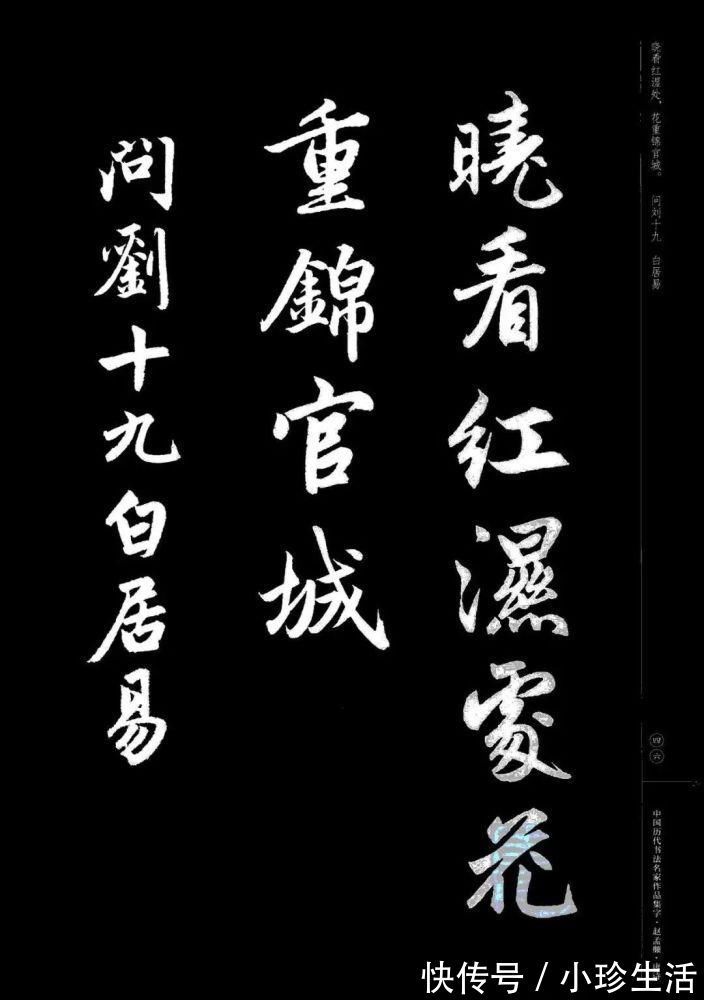 曉看红濕處花
重錦官城
問劉十九白居易
晓看红湿处，花重锦官城。 问刘十九 白居易
四六
中国历代书法名家作品集字·赵孟頫·
快传号/小珍生活